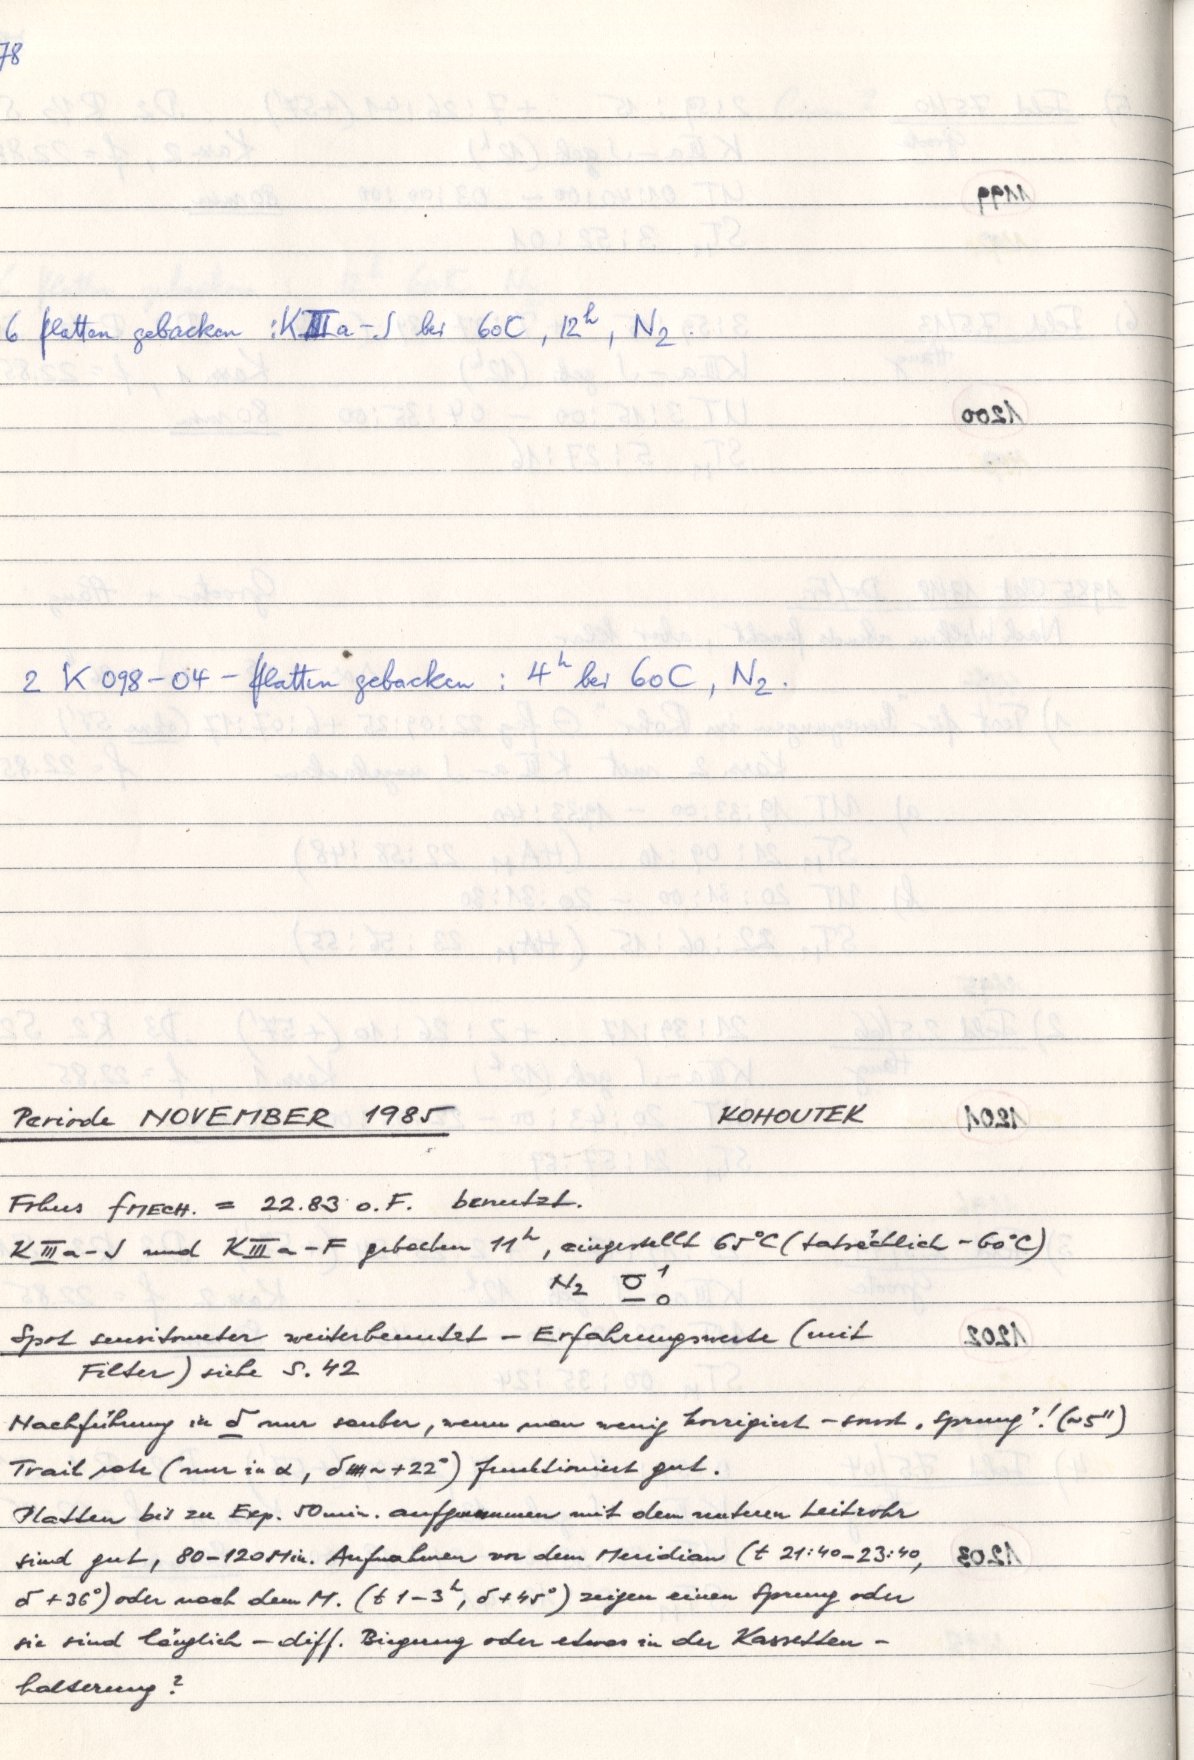 78
6 Platten gebacken : KIIIa-J bei 60C, 12h, N2.
2 K 098-04 - Platten gebacken : 4h bei 60C, N2.
Periode NOVEMBER 1985 KOHOUTEK
Fokus fMECH. = 22.83 o.F. benutzt.
KIIIa-J und KIIIa-F gebacken 11h, eingestellt 65°C (tatsächlich ~60°C)
N2
Spot sensitometer weiterbenutzt - Erfahrungswerte (mit
Filter) siehe S. 42
Nachführung in δ nur sauber, wenn man wenig korrigiert - sonst „Sprung"! (~5")
Trail rate (nur in α, δ ~ +22°) funktioniert gut.
Platten bis zu Exp. 50min. aufgenommen mit dem unteren Leitrohr
sind gut, 80-120Min. Aufnahmen vor dem Meridian (t 21:40-23:40,
δ +36°) oder nach dem M. (t 1-3h, δ +45°) zeigen einen Sprung oder
sie sind länglich - diff. Biegung oder etwas in der Kassetten-
halterung?